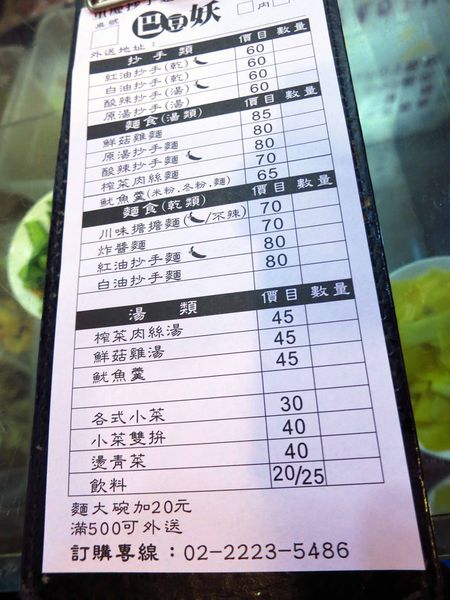 桌號 內
巴豆妖
外送地址：
抄手類 價目 數量
紅油抄手(乾) 60
白油抄手(乾) 60
酸辣抄手(湯) 60
原湯抄手(湯) 60
麵食(湯類) 價目 數量
鮮菇雞麵 85
原湯抄手麵 80
酸辣抄手麵 80
榨菜肉絲麵 70
魷魚羹(米粉.冬粉.麵) 65
麵食(乾類) 價目 數量
川味擔擔麵(/不辣) 70
炸醬麵 70
紅油抄手麵 80
白油抄手麵 80
湯類 價目 數量
榨菜肉絲湯 45
鮮菇雞湯 45
魷魚羹 45
各式小菜 30
小菜雙拚 40
燙青菜 40
飲料 20/25
麵大碗加20元
滿500可外送
訂購專線：02-2223-5486